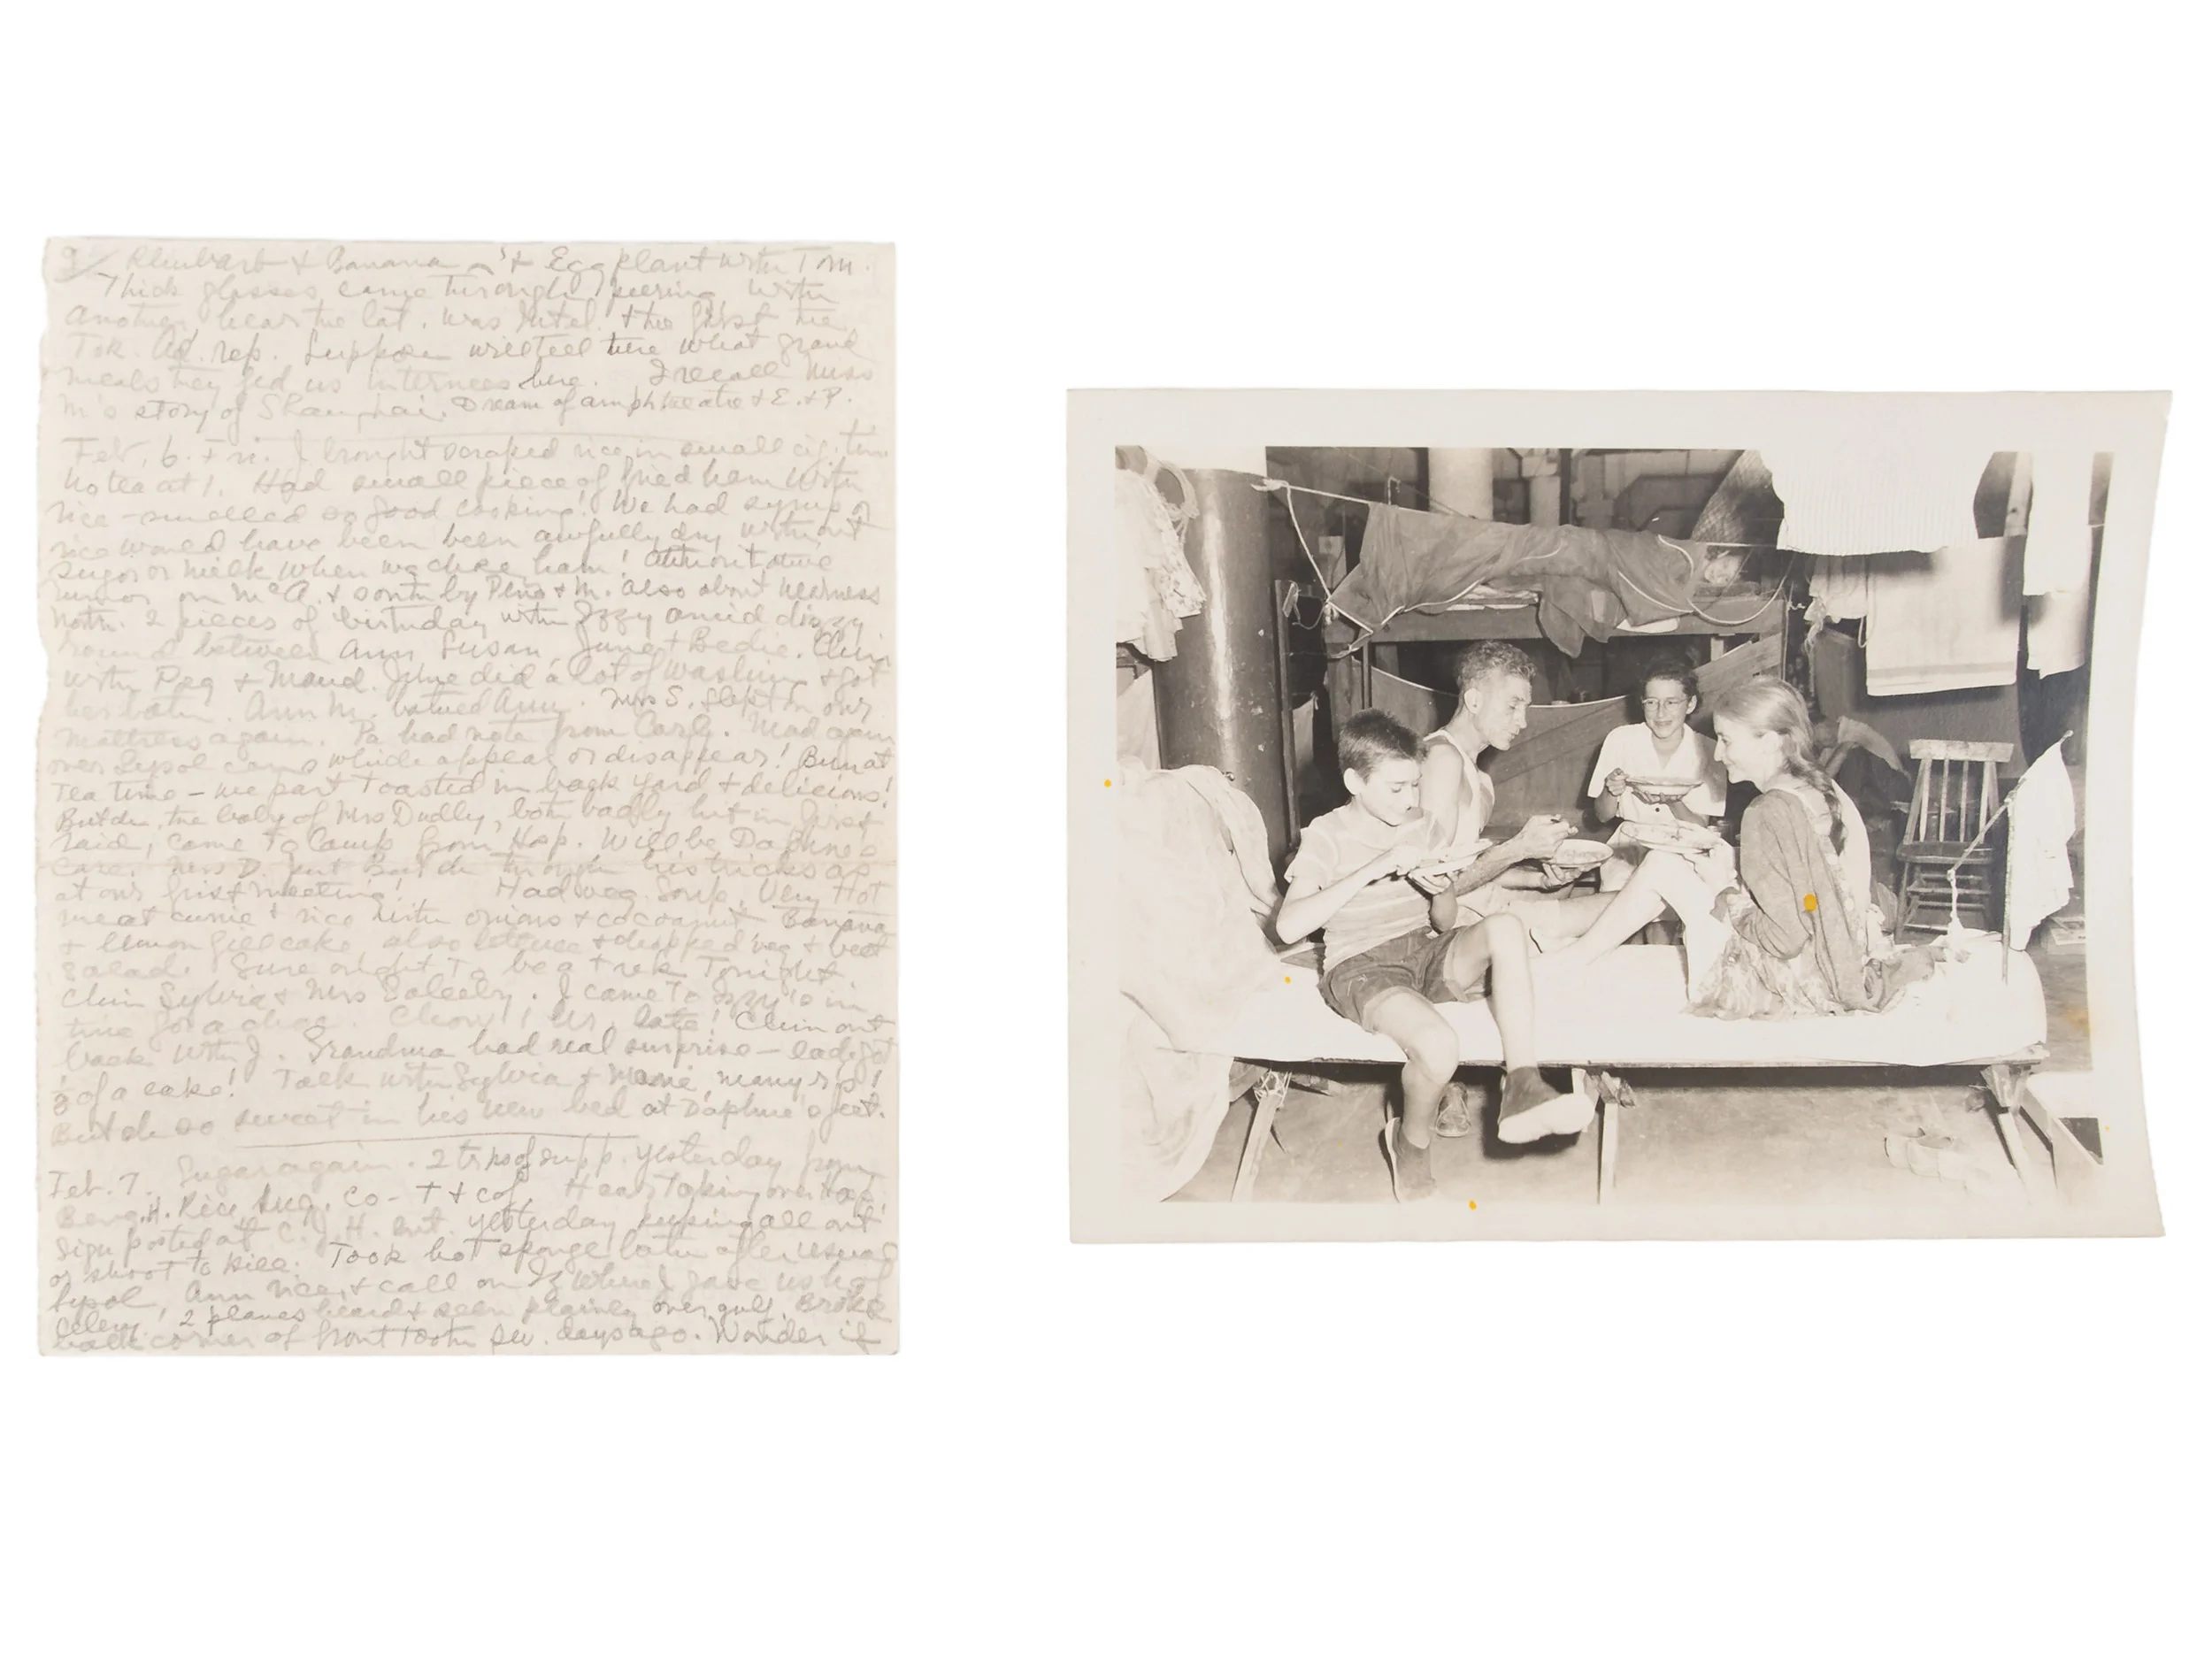 9/ Rhubarb & Banana & Egg plant with Tom.
Thick glasses came through peering with
another, near the lat. was Intel. & the first the
Tok. Ad. rep. Suppose will tell there what grand
meals they fed us internees here. I recall Miss
M's story of Shanghai. Dream of amphitheatre & E. & P.
Feb. 6. Fri. I brought scraped rice in small cig. tin
No tea at 1. Had small piece of fried ham with
rice - smelled so good cooking! We had syrup or
rice would have been been awfully dry without
sugar or milk when we chose ham!
rumor on McA. & south by Peno & M. also about nearness
North. 2 pieces of birthday with Izzy amid dizzy
round between Ann Susan June & Bedie. Chin
with Peg & Maud. June did a lot of washing & got
her bath. Ann M. bathed Ann. Mrs S. slept on our
mattress again. Pa had note from Carl. Mad again
over Lysol cans which appear or disappear! Bun at
Tea time - we part toasted in back yard & delicious!
Butch, the baby of Mrs Dudly, both badly hit in first
raid, came to Camp from Hosp. Will be Daphne's
care. Mrs D. put Butch through his tricks as
at our first meeting! Had veg. Soup, Very Hot
meat currie & rice with onions & cocoanut Banana
& lemon cake, also lettuce & chopped veg & beet
Salad. Sure ought To be a trek Tonight
Chin Sylvia & Mrs Saleeby. I came To Izzy's in
time for a chee. Chow 1 hr. late! Chin out
back with J. Grandma had real surprise - each got
1/8 of a cake! Talk with Sylvia & Marie, many rps!
Butch so sweet in his new bed at Daphne's feet.
Feb. 7. Sugar again. 2 trps of supp. yesterday from
Beng. H. Rice, sug. Co - T & cof. Hear Taking over Hosp.
Sign posted at C. J. H. ent. yesterday keeping all out
or shoot to kill. Took hot sponge bath after usual
Lysol, Ann rice, & call on Iz where J gave us h. of
celery! 2 planes heard & seen plainly over gulf. Broke
back corner of front tooth sev. days ago. Wonder if